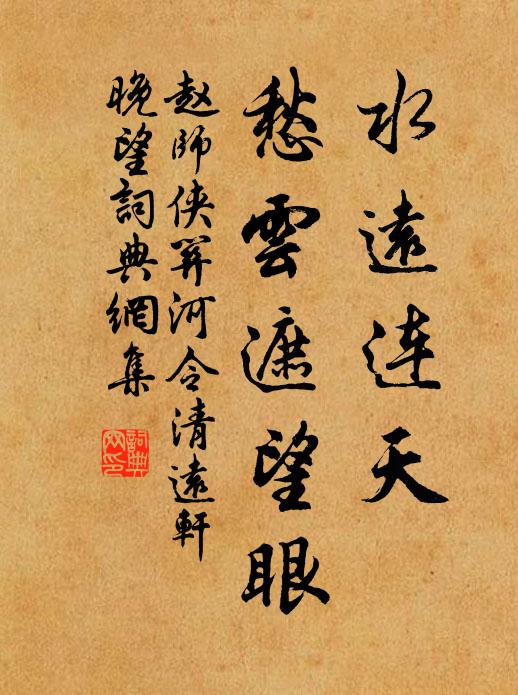 水遠連天
愁雲遮望眼
赵師侠羿河令清遠軒
晚望詞典網集
詞典网印